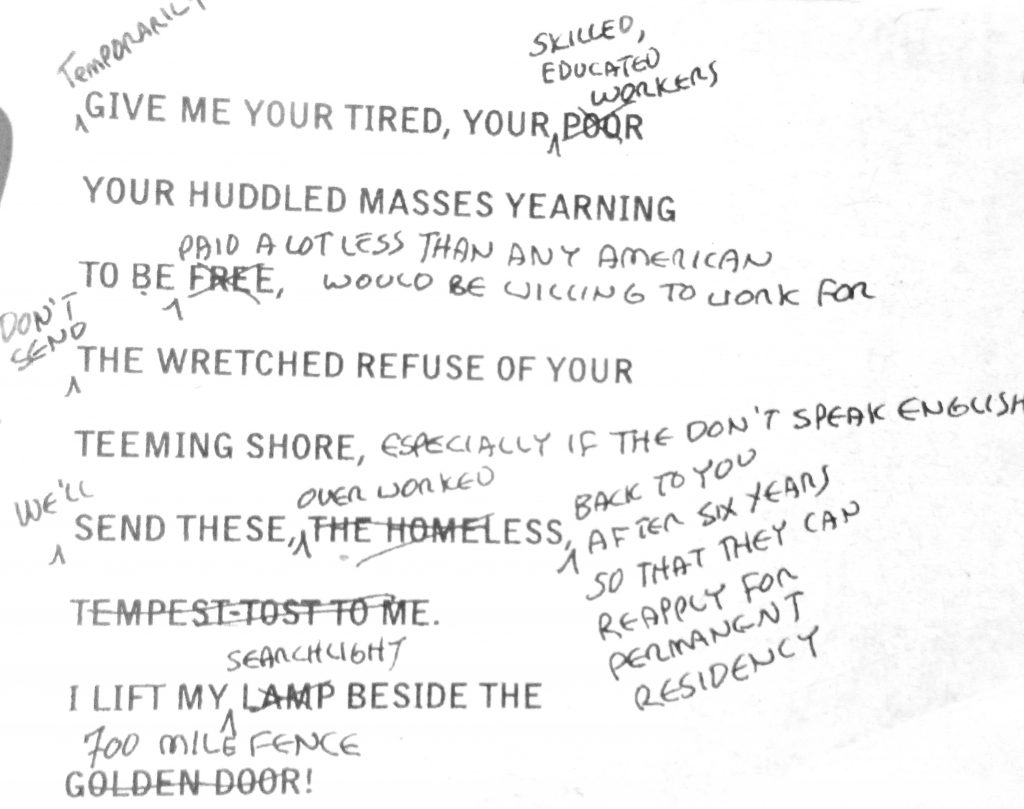 TEMPORARILY
SKILLED,
EDUCATED
WORKERS
GIVE ME YOUR TIRED, YOUR POOR
YOUR HUDDLED MASSES YEARNING
PAID A LOT LESS THAN ANY AMERICAN
TO BE FREE, WOULD BE WILLING TO WORK FOR
DON'T
SEND
THE WRETCHED REFUSE OF YOUR
TEEMING SHORE, ESPECIALLY IF THE DON'T SPEAK ENGLISH
WE'LL
OVER WORKED
SEND THESE, THE HOMELESS,
BACK TO YOU
AFTER SIX YEARS
SO THAT THEY CAN
REAPPLY FOR
PERMANENT
RESIDENCY
TEMPEST-TOST TO ME.
SEARCHLIGHT
I LIFT MY LAMP BESIDE THE
700 MILE FENCE
GOLDEN DOOR!